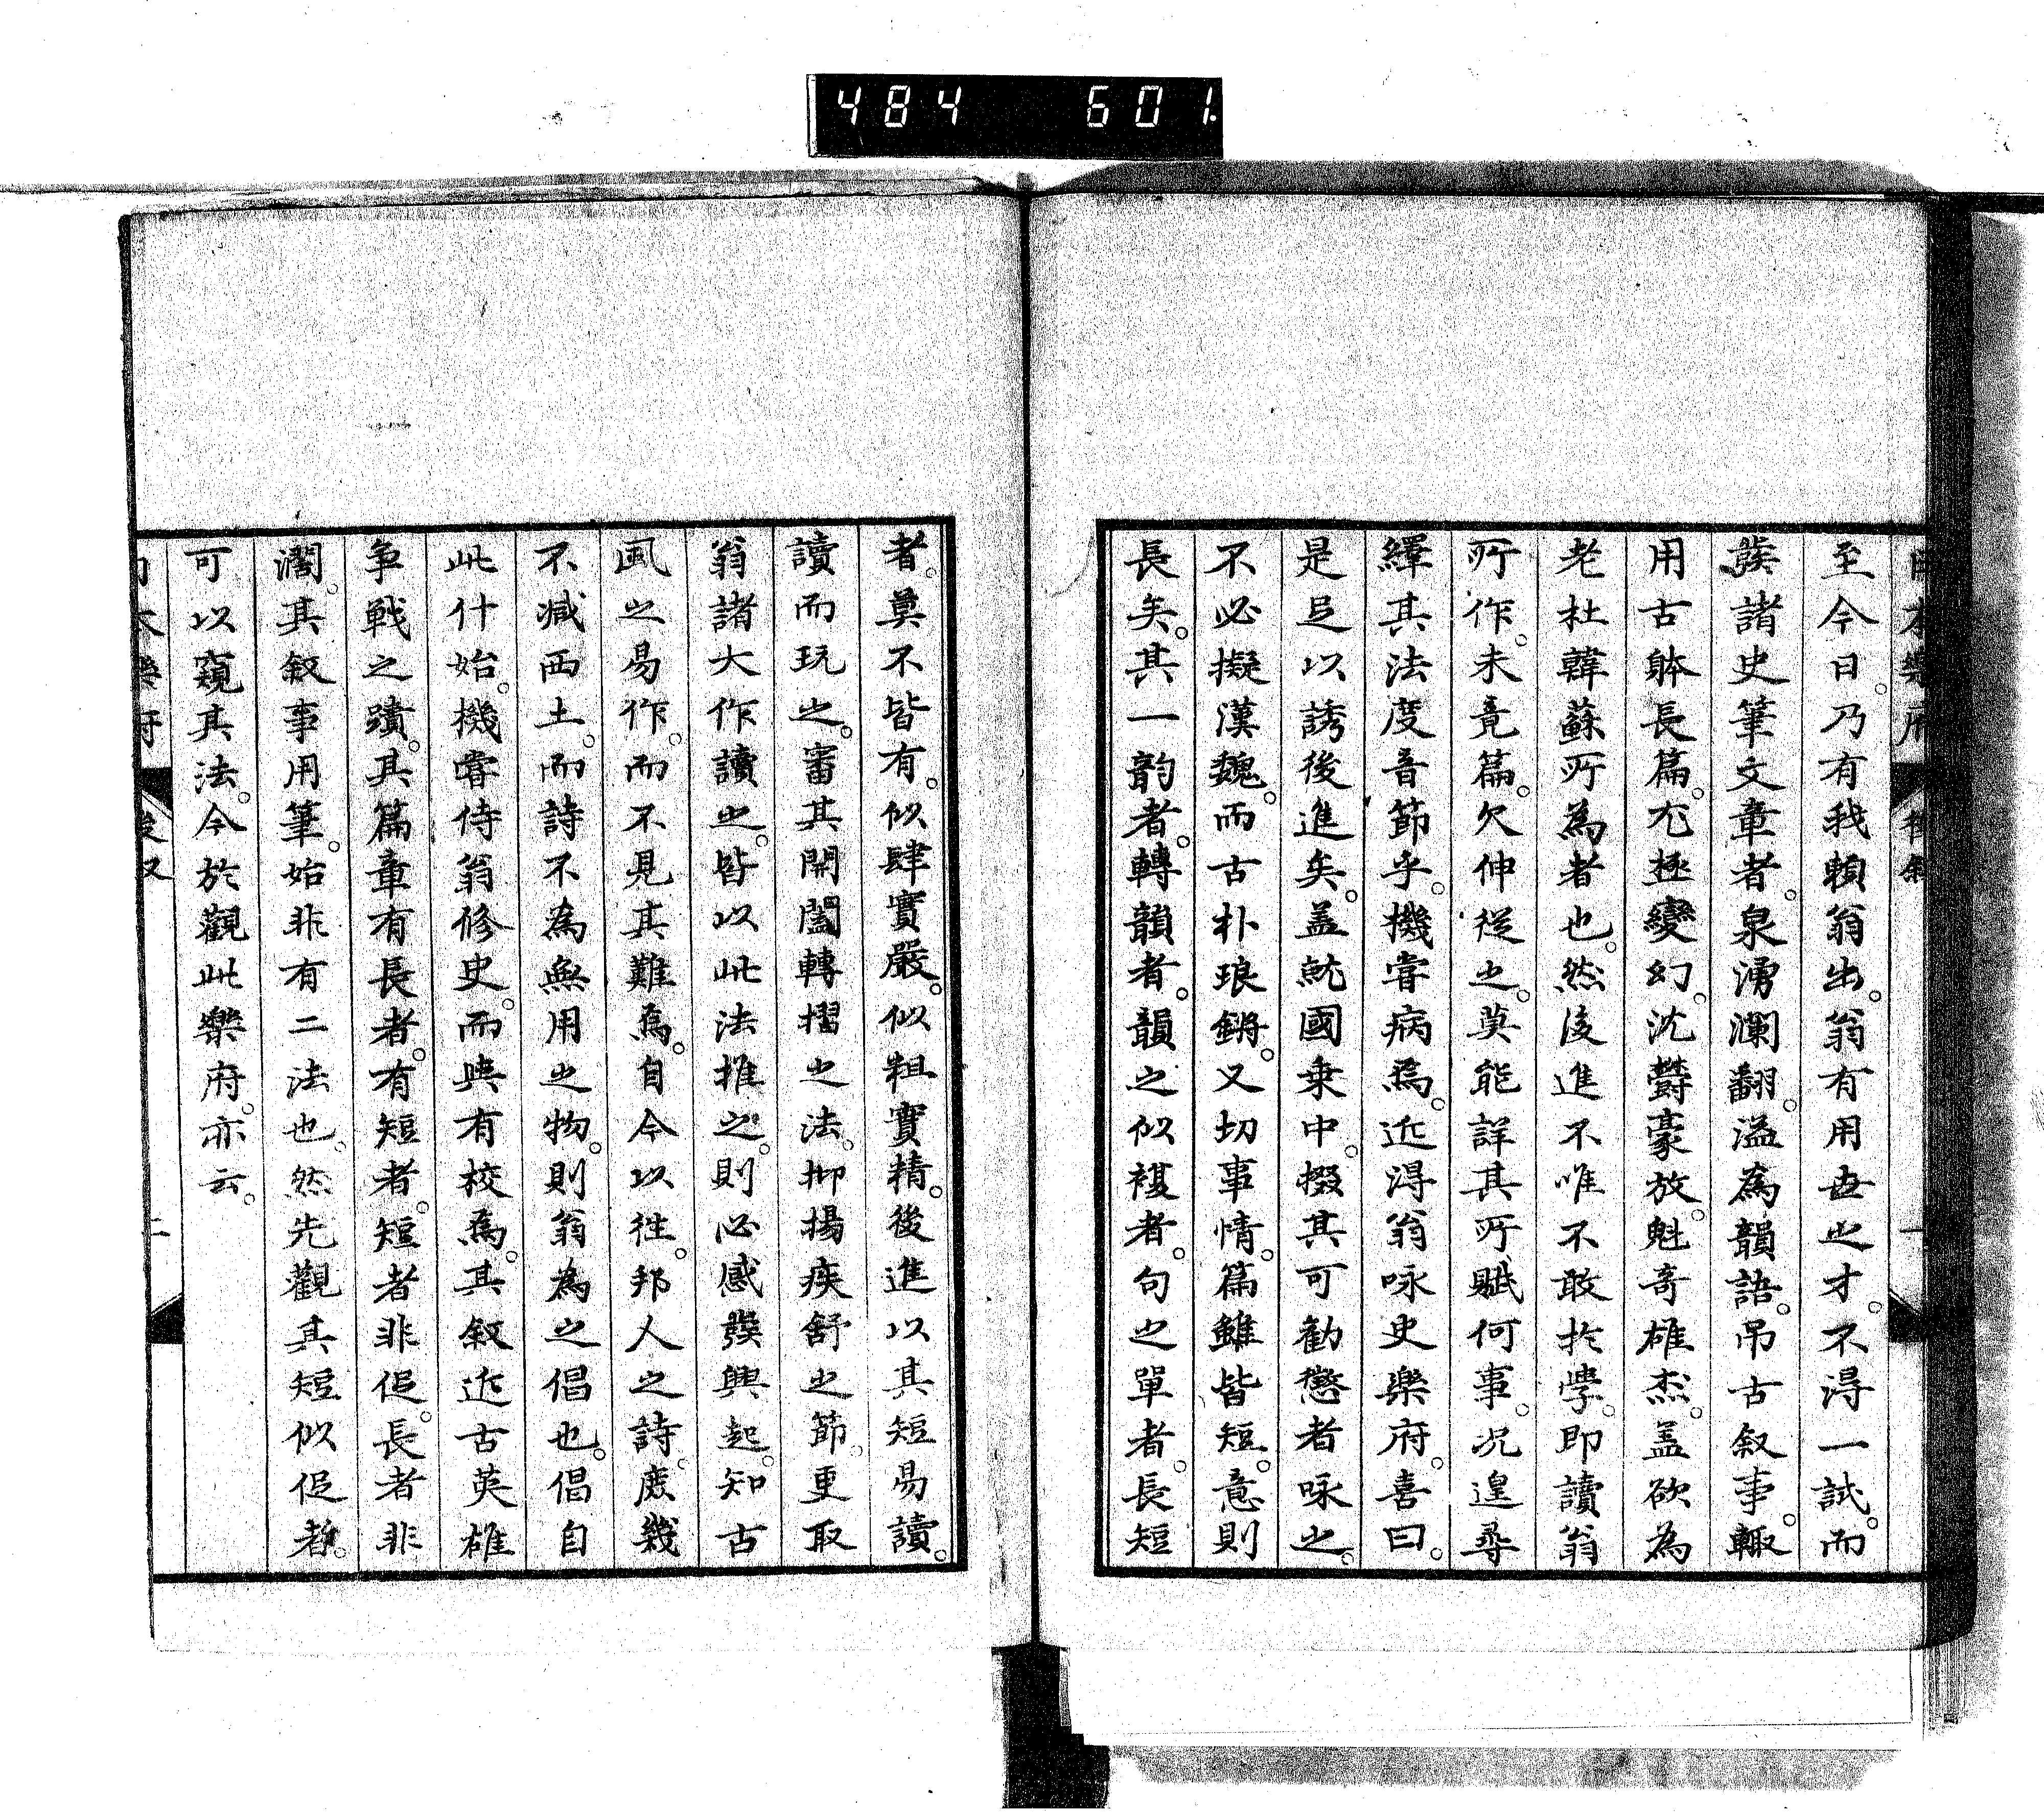 484 601
至今日。乃有我賴翁出。翁有用世之才。不得一試。而
發諸史筆文章者。泉湧瀾翻。溢為韻語。吊古敘事。輙
用古躰長篇。尤極變幻。沈欝豪放。魁奇雄杰。盖欲為
老杜韓蘇所為者也。然後進不唯不敢於學。即讀翁
所作。未竟篇。欠伸從之。莫能詳其所賦何事。况遑尋
繹其法度音節乎。機嘗病焉。近得翁咏史樂府。喜曰。
是足以誘後進矣。盖就國乗中。掇其可勸懲者咏之。
不必擬漢魏。而古朴琅鏘。又切事情。篇雖皆短。意則
長矣。其一韵者。轉韻者。韻之似複者。句之單者。長短
者。莫不皆有。似肆實嚴。似粗實精。後進以其短易讀。
讀而玩之。審其開闔轉摺之法。抑揚疾舒之節。更取
翁諸大作讀之。皆以此法推之。則必感發興起。知古
風之易作。而不見其難焉。自今以往。邦人之詩。庶幾
不减西土。而詩不為無用之物。則翁為之倡也。倡自
此什始。機嘗侍翁修史。而與有校焉。其叙近古英雄
争戰之蹟。其篇章有長者。有短者。短者非促。長者非
濶。其叙事用筆。始非有二法也。然先觀其短似促者。
可以窺其法。今於觀此樂府。亦云。